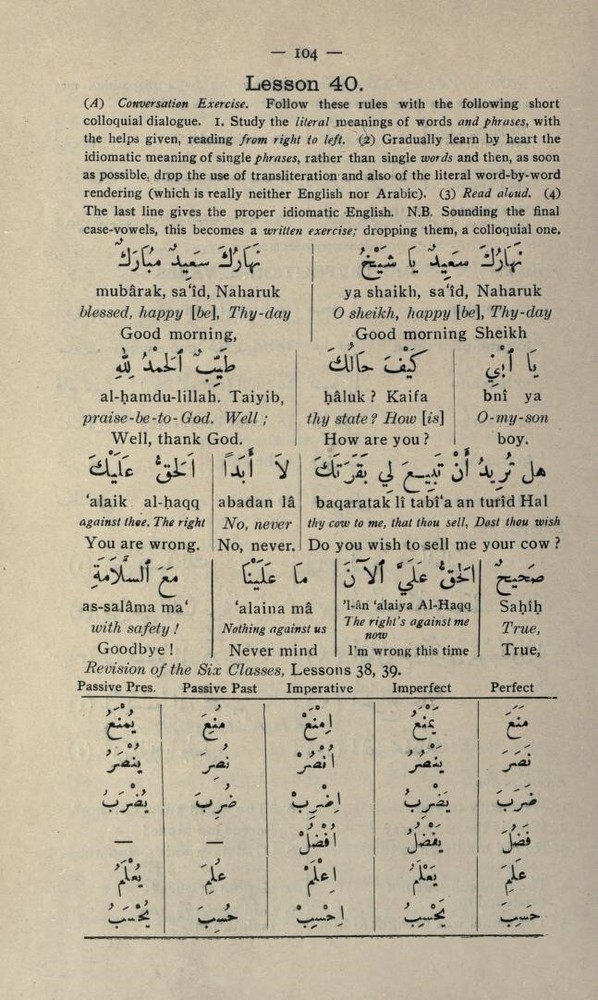 — 104 —
Lesson 40.
(A) Conversation Exercise. Follow these rules with the following short
colloquial dialogue. 1. Study the literal meanings of words and phrases, with
the helps given, reading from right to left. (2) Gradually learn by heart the
idiomatic meaning of single phrases, rather than single words and then, as soon
as possible, drop the use of transliteration and also of the literal word-by-word
rendering (which is really neither English nor Arabic). (3) Read aloud. (4)
The last line gives the proper idiomatic English. N.B. Sounding the final
case-vowels, this becomes a written exercise; dropping them, a colloquial one.
نَهَارُكَ سَعِيدٌ يَا شَيْخُ نَهَارُكَ سَعِيدٌ مُبَارَكٌ
mubârak, sa‘îd, Naharuk ya shaikh, sa‘îd, Naharuk
blessed, happy [be], Thy-day O sheikh, happy [be], Thy-day
Good morning, Good morning Sheikh
يَا ٱبْنِي كَيْفَ حَالُكَ طَيِّبٌ ٱلْحَمْدُ لِلّٰهِ
al-ḥamdu-lillah. Taiyib, ḥâluk ? Kaifa bnî ya
praise-be-to-God. Well ; thy state ? How [is] O-my-son
Well, thank God. How are you ? boy.
هل تُرِيدُ أَنْ تَبِيعَ لِي بَقَرَتَكَ لَا أَبَدًا اَلْحَقُّ عَلَيْكَ
‘alaik al-ḥaqq abadan lâ baqaratak lî tabî‘a an turîd Hal
against thee. The right No, never thy cow to me, that thou sell, Dost thou wish
You are wrong. No, never. Do you wish to sell me your cow ?
صَحِيحٌ اَلْحَقُّ عَلَيَّ ٱلْآنَ مَا عَلَيْنَا مَعَ ٱلسَّلَامَةِ
as-salâma ma‘ ‘alaina mâ ’l-ân ‘alaiya Al-Haqq Saḥîḥ
with safety ! Nothing against us The right's against me now True,
Goodbye ! Never mind I'm wrong this time True,
Revision of the Six Classes, Lessons 38, 39.
Passive Pres. Passive Past Imperative Imperfect Perfect
مَنَعَ يَمْنَعُ اِمْنَعْ مُنِعَ يُمْنَعُ
نَصَرَ يَنْصُرُ اُنْصُرْ نُصِرَ يُنْصَرُ
ضَرَبَ يَضْرِبُ اِضْرِبْ ضُرِبَ يُضْرَبُ
فَضُلَ يَفْضُلُ اُفْضُلْ — —
عَلِمَ يَعْلَمُ اِعْلَمْ عُلِمَ يُعْلَمُ
حَسِبَ يَحْسِبُ اِحْسِبْ حُسِبَ يُحْسَبُ